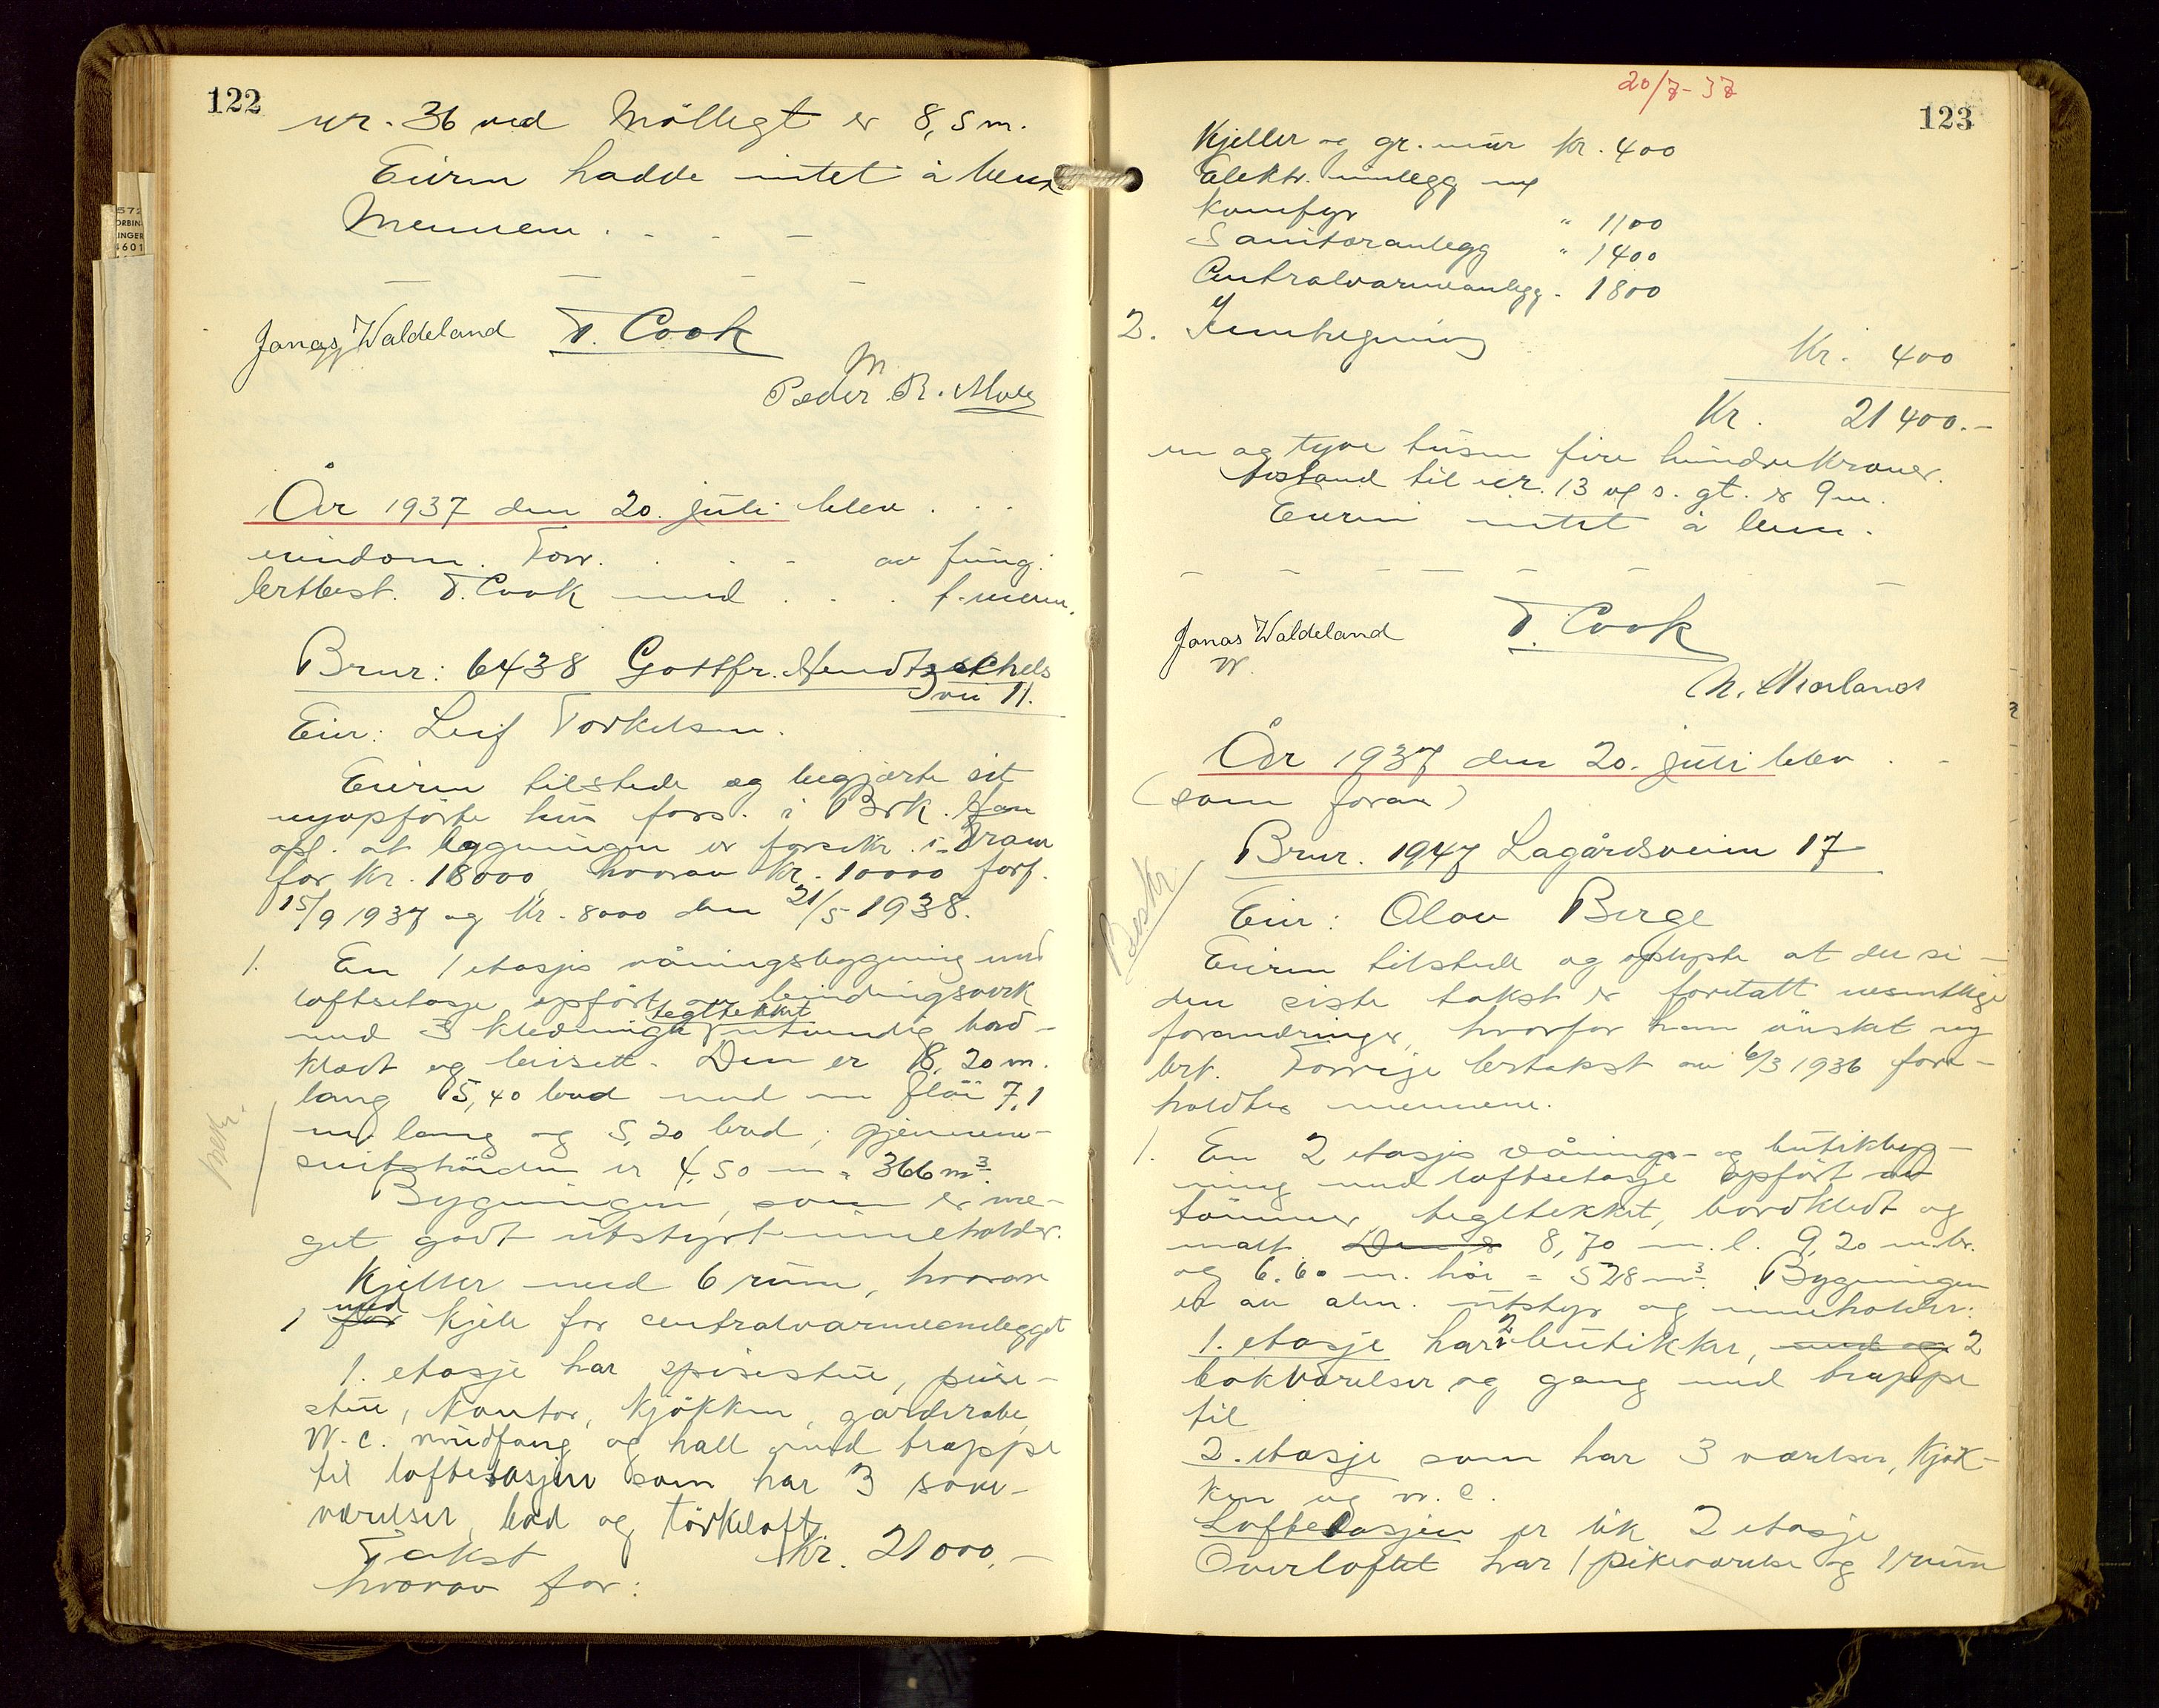 122
nr. 36 ved Möllegt er 8,5 m.
Eieren hadde intet å bem
Mennene . . . –
Jonas Waldeland T. Cook
Peder R.
År 1937 den 20. juli blev . . .
eiendom. Forr. . . . av fung.
brtbest. T. Cook med . . . f. menn.
Brnr: 6438 Gottfr. Hendtzschels
vei 11.
Eier: Leif Torkelsen.
Eieren tilstede og begjærte sit
nyopförte hus fors. i Brk. Han
opl. at bygningen er forsikr. i Fram
for kr. 18000, hvorav kr. 10000 forf.
15/9 1937 og kr. 8000 den 21/5 1938.
1. En 1 etasjes våningsbygning med
loftsetasje opfört av bindingsverk
med 3 kledninger tegltekket utvendig bord-
klædt og beiset. Den er 8,20 m.
lang 5,40 bred med en flöi 7,1
m. lang og 5,20 bred; gjennem-
snitshöiden er 4,50 m = 366 m³.
Beskr.
Bygningen, som er me-
get godt utstyrt inneholder.
Kjeller med 6 rum, hvorav
1 for med kjele for centralvarmeanlegget
1. etasje har spisestue, peise-
stue, kontor, kjökken, garderobe,
W.C. vindfang og hall med trappe
til loftsetasjen som har 3 sove-
værelser, bad og törkeloft
Takst kr. 21000.–
hvorav for:
20/7-37
123
Kjeller og gr. mur kr. 400
Elektr. innlegg m/
komfyr " 1100
Sanitæranlegg " 1400
Centralvarmeanlegg - 1800
2. Innhegning
Kr. 400
Kr. 21400.–
en og tyve tusen fire hundre kroner.
Avstand til nr. 13 v/ s. gt. er 9 m.
Eieren intet å bem.
Jonas Waldeland T. Cook
N. Morland
År 1937 den 20. juli blev . -
(som foran)
Beskr.
Brnr. 1947 Lagårdsveien 17
Eier: Olav Berge
Eieren tilstede og oplyste at der si-
den siste takst er foretatt vesentlige
forandringer, hvorfor han önsket ny
brt. Forrige brtakst av 6/3 1936 fore-
holdtes mennene.
1. En 2 etasjes vånings- og butikbyg-
ning med loftsetasje opfört av
tömmer, tegltekket, bordkledt og
malt. Den er 8,70 m. l. 9,20 m. br.
og 6.60 m. höi = 528 m³. Bygningen
er av alm. utstyr og inneholder:
1. etasje har 2 butikker, med og 2
bakværelser og gang med trappe
til
2. etasje som har 3 værelser, kjök-
ken og w.c.
Loftsetasjen er lik 2 etasje
Overloftet har 1 pikeværelse og 1 rum